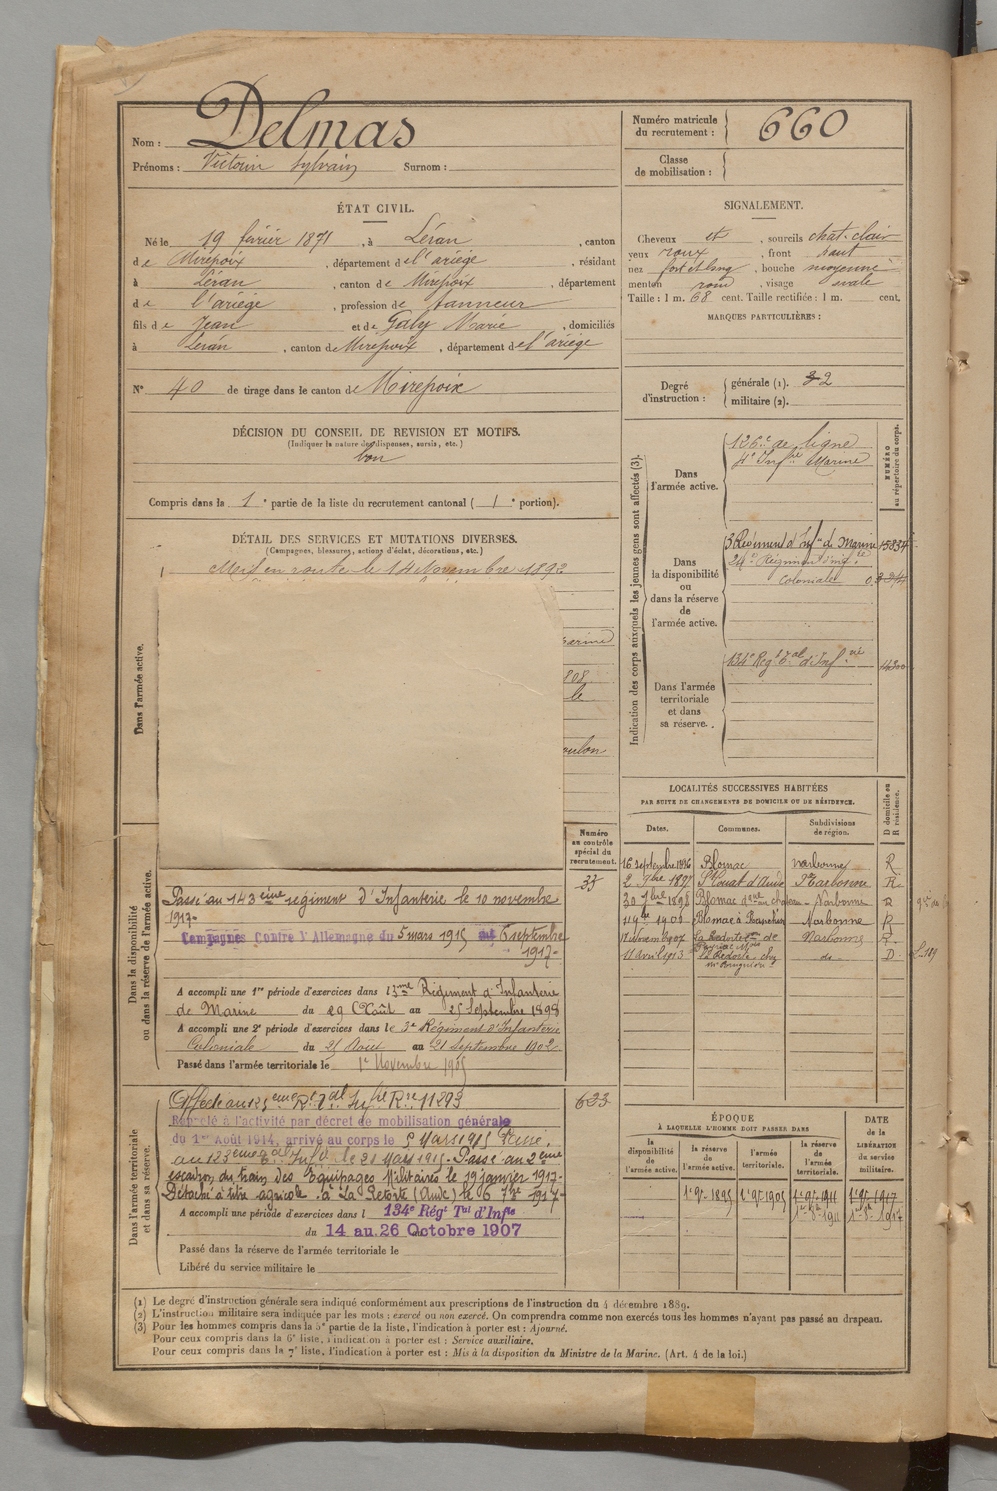 Nom : Delmas
Prénoms : Victorin Sylvain Surnom :
Numéro matricule du recrutement : 660
Classe de mobilisation :
ÉTAT CIVIL.
Né le 19 février 1871, à Léran, canton
de Mirepoix, département de l'ariège, résidant
à Léran, canton de Mirepoix, département
de l'ariège, profession de tanneur
fils de Jean et de Galy Marie, domiciliés
à Léran, canton de Mirepoix, département de l'ariège
N° 40 de tirage dans le canton de Mirepoix
DÉCISION DU CONSEIL DE REVISION ET MOTIFS.
(Indiquer la nature des dispenses, sursis, etc.)
bon
Compris dans la 1e partie de la liste du recrutement cantonal (1e portion).
DÉTAIL DES SERVICES ET MUTATIONS DIVERSES.
(Campagnes, blessures, actions d'éclat, décorations, etc.)
Mis en route le 14 Novembre 1892
Dans l'armée active.
Numéro au contrôle spécial du recrutement.
33
Dans la disponibilité ou dans la réserve de l'armée active.
Passé au 143eme régiment d'Infanterie le 10 novembre
1917.
Campagnes Contre l'Allemagne du 5 mars 1915 au 6 septembre
1917.
A accompli une 1re période d'exercices dans l 3me Régiment d'Infanterie
de Marine du 29 Août au 25 Septembre 1898
A accompli une 2e période d'exercices dans le 3e Régiment d'Infanterie
Coloniale du 25 Août au 21 Septembre 1902
Passé dans l'armée territoriale le 1er Novembre 1905
Dans l'armée territoriale et dans sa réserve.
Affecté au 125eme Rt Tal Infrie Rre 11293
633
Rappelé à l'activité par décret de mobilisation générale
du 1er Août 1914, arrivé au corps le 5 Mars 1915 Passé
au 123eme Tal Infie le 21 Mars 1915. Passé au 2eme
escadron du train des Equipages Militaires le 19 janvier 1917.
Détaché à titre agricole à La Redorte (Aude) le 6 7bre 1917.
A accompli une période d'exercices dans l 134e Régt Tal d'Infie
du 14 au 26 Octobre 1907
Passé dans la réserve de l'armée territoriale le
Libéré du service militaire le
SIGNALEMENT.
Cheveux et, sourcils chat. clair
yeux roux, front haut
nez fort et long, bouche moyenne
menton rond, visage ovale
Taille : 1 m. 68 cent. Taille rectifiée : 1 m. cent.
MARQUES PARTICULIÈRES :
Degré d'instruction : générale (1). 2
militaire (2).
Indication des corps auxquels les jeunes gens sont affectés (3).
NUMÉRO au répertoire du corps.
Dans l'armée active.
126e de ligne
4e Infie Marine
Dans la disponibilité ou dans la réserve de l'armée active.
3 Régiment d'Infie de Marine 15834
24e Régiment d'Infie
Coloniale
Dans l'armée territoriale et dans sa réserve.
134e Regt Tal d'Infrie
LOCALITÉS SUCCESSIVES HABITÉES
PAR SUITE DE CHANGEMENTS DE DOMICILE OU DE RÉSIDENCE.
Dates. Communes. Subdivisions de région. D domicile ou R résidence.
16 Septembre 1896 Blomac Narbonne R
2 9bre 1897 St Couat d'Aude Narbonne R
30 7bre 1898 Blomac Narbonne R
Blomac Narbonne R
17 Novembre 1907 La Redorte Narbonne R
11 avril 1913 La Redorte, chez de D
ÉPOQUE
À LAQUELLE L'HOMME DOIT PASSER DANS
DATE de la LIBÉRATION du service militaire.
la disponibilité de l'armée active. la réserve de l'armée active. l'armée territoriale. la réserve de l'armée territoriale.
1er 9bre 1895 1er 9bre 1905 1er 9bre 1911 1er 9bre 1917
(1) Le degré d'instruction générale sera indiqué conformément aux prescriptions de l'instruction du 4 décembre 1889.
(2) L'instruction militaire sera indiquée par les mots : exercé ou non exercé. On comprendra comme non exercés tous les hommes n'ayant pas passé au drapeau.
(3) Pour les hommes compris dans la 5e partie de la liste, l'indication à porter est : Ajourné.
Pour ceux compris dans la 6e liste, l'indication à porter est : Service auxiliaire.
Pour ceux compris dans la 7e liste, l'indication à porter est : Mis à la disposition du Ministre de la Marine. (Art. 4 de la loi.)